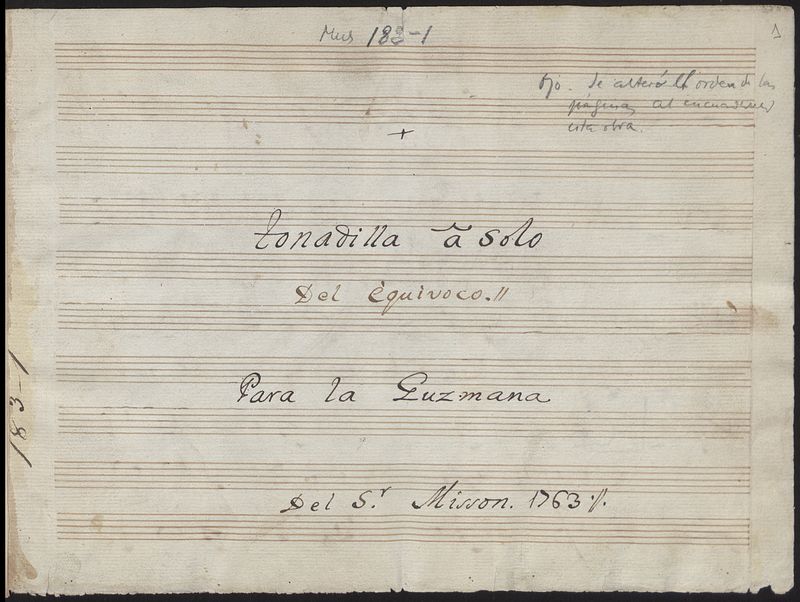 Mus 183-1
1
Ojo. Se alteró el orden de las
páginas al encuadernar
esta obra.
+
tonadilla â Solo
Del Equivoco. //
Para la Guzmana
Del S.r Misson. 1763 %.
183-1